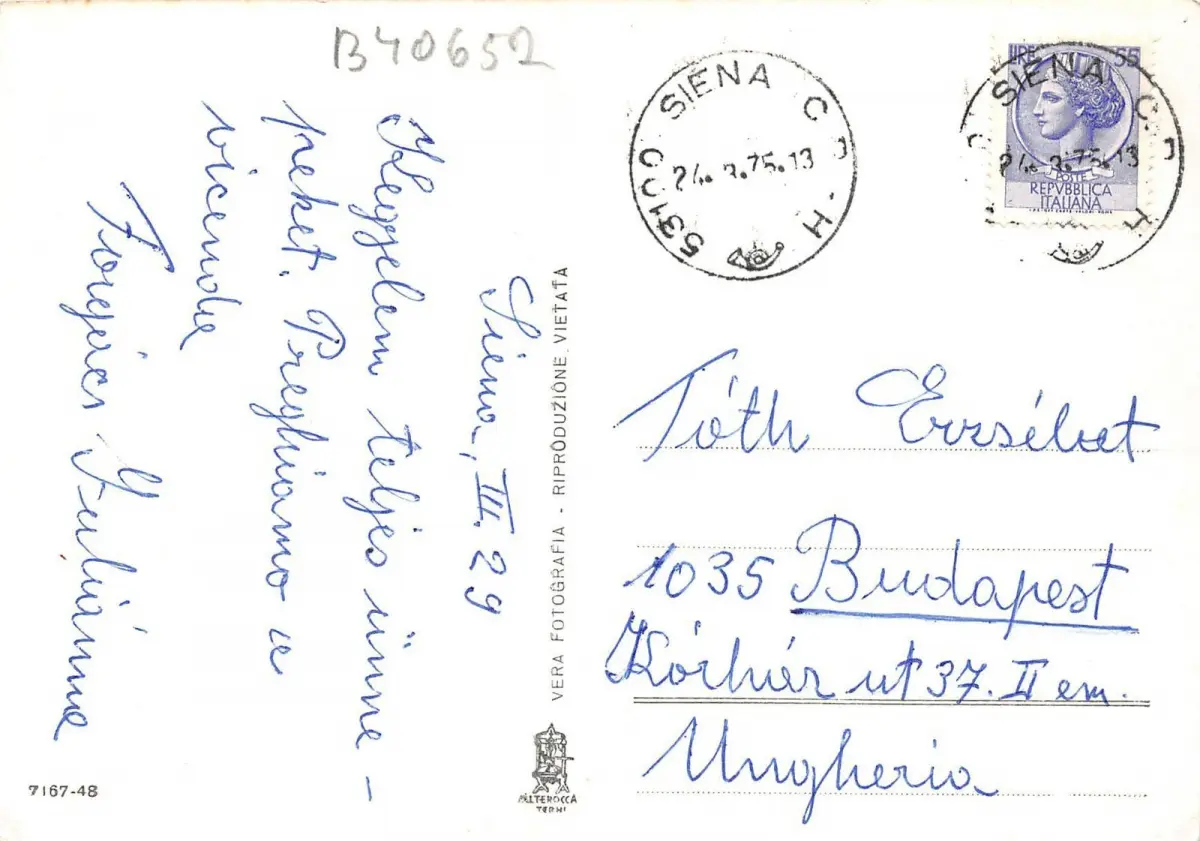 B40652
Siena, III. 29
Kegyelem teljes ünne-
peket. Preghiamo a
vicenda
Forgács Gyuláné
VERA FOTOGRAFIA - RIPRODUZIONE VIETATA
ALTEROCCA
TERNI
7167-48
53100 SIENA C.P - H
24. 3.75.13
LIRE 55
POSTE
REPVBBLICA
ITALIANA
SIENA C.P H
24. 3.75.13
Tóth Erzsébet
1035 Budapest
Kórház ut 37. II em.
Ungheria